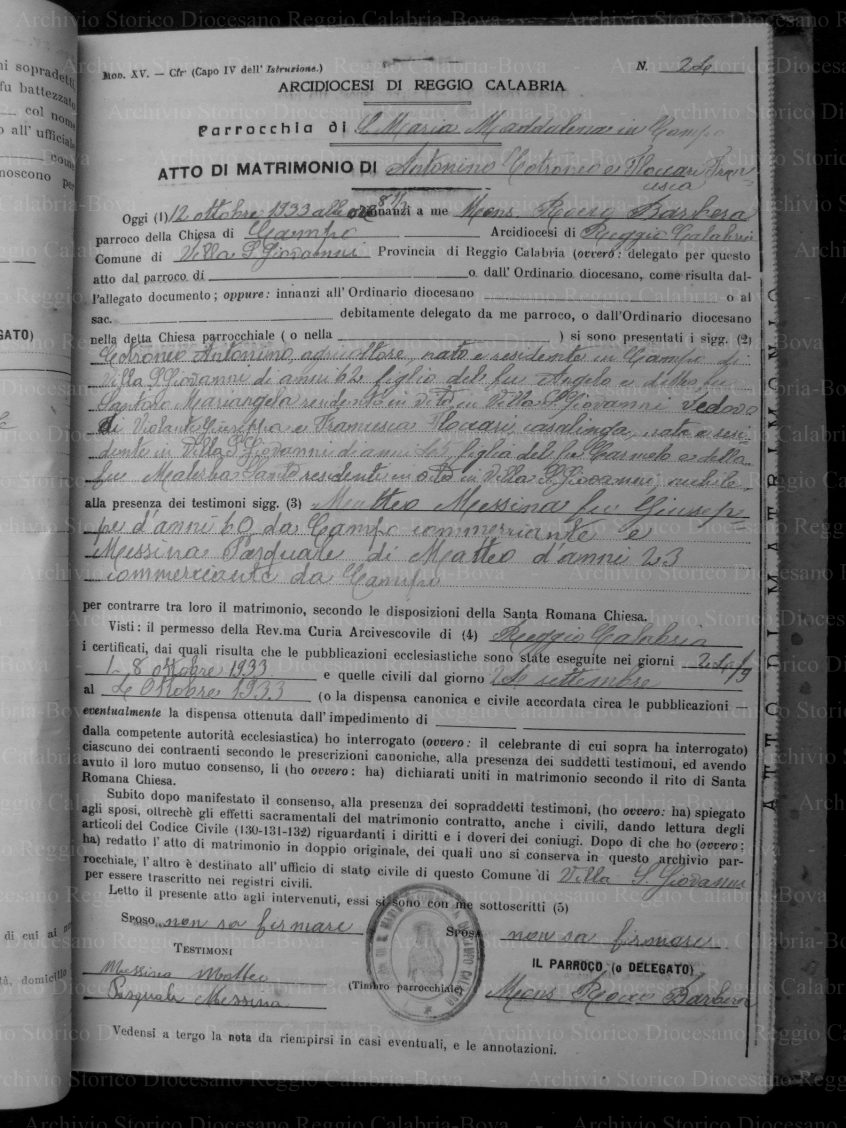 Mon. XV. — Cfr (Capo IV dell' Istruzione.)
N. 24
ARCIDIOCESI DI REGGIO CALABRIA
Parrocchia di S Maria Maddalena in Campo
ATTO DI MATRIMONIO DI Antonino Cotroneo e Floccari Fran=
cesca
Oggi (1) 12 ottobre 1933 alle ore 8 1/2 innanzi a me Mons. Rocco Barbera
parroco della Chiesa di Campo Arcidiocesi di Reggio Calabria
Comune di Villa S Giovanni Provincia di Reggio Calabria (ovvero: delegato per questo
atto dal parroco di o dall' Ordinario diocesano, come risulta dal-
l'allegato documento; oppure: innanzi all' Ordinario diocesano o al
sac. debitamente delegato da me parroco, o dall'Ordinario diocesano
nella detta Chiesa parrocchiale ( o nella ) si sono presentati i sigg. (2)
Cotroneo Antonino agricoltore, nato e residente in Campo di
Villa S Giovanni di anni 62 figlio del fu Angelo e della fu
Santoro Mariangela residente in vita in Villa S Giovanni Vedovo
di Violante Giuseppa e Francesca Floccari casalinga, nata e resi=
dente in Villa S Giovanni di anni figlia del fu Carmelo e della
fu Santa residente in vita in Villa S Giovanni, nubile
alla presenza dei testimoni sigg. (3) Matteo Messina fu Giusep=
pe d'anni 60 da Campo commerciante e
Messina Pasquale di Matteo d'anni 23
commerciante da Campo
per contrarre tra loro il matrimonio, secondo le disposizioni della Santa Romana Chiesa.
Visti: il permesso della Rev.ma Curia Arcivescovile di (4) Reggio Calabria
i certificati, dai quali risulta che le pubblicazioni ecclesiastiche sono state eseguite nei giorni 24/9
1. 8 ottobre 1933 e quelle civili dal giorno settembre
al Ottobre 1933 (o la dispensa canonica e civile accordata circa le pubblicazioni —
eventualmente la dispensa ottenuta dall' impedimento di
dalla competente autorità ecclesiastica) ho interrogato (ovvero: il celebrante di cui sopra ha interrogato)
ciascuno dei contraenti secondo le prescrizioni canoniche, alla presenza dei suddetti testimoni, ed avendo
avuto il loro mutuo consenso, li (ho ovvero: ha) dichiarati uniti in matrimonio secondo il rito di Santa
Romana Chiesa.
Subito dopo manifestato il consenso, alla presenza dei sopraddetti testimoni, (ho ovvero: ha) spiegato
agli sposi, oltrechè gli effetti sacramentali del matrimonio contratto, anche i civili, dando lettura degli
articoli del Codice Civile (130-131-132) riguardanti i diritti e i doveri dei coniugi. Dopo di che ho (ovvero:
ha) redatto l' atto di matrimonio in doppio originale, dei quali uno si conserva in questo archivio par-
rocchiale, l' altro è destinato all'ufficio di stato civile di questo Comune di Villa S. Giovanni
per essere trascritto nei registri civili.
Letto il presente atto agli intervenuti, essi si sono con me sottoscritti (5)
Sposo non sa firmare Sposa non sa firmare
TESTIMONI
IL PARROCO (o DELEGATO)
Messina Matteo
(Timbro parrocchiale)
Pasquale Messina
Mons Rocco Barbera
Vedensi a tergo la nota da riempirsi in casi eventuali, e le annotazioni.
ATTO DI MATRIMONIO
ni sopradetti
fu battezzato
col nome
o all' ufficiale
come
noscono per
GATO)
di cui al
tà, domicilio
Archivio Storico Diocesano Reggio Calabria-Bova